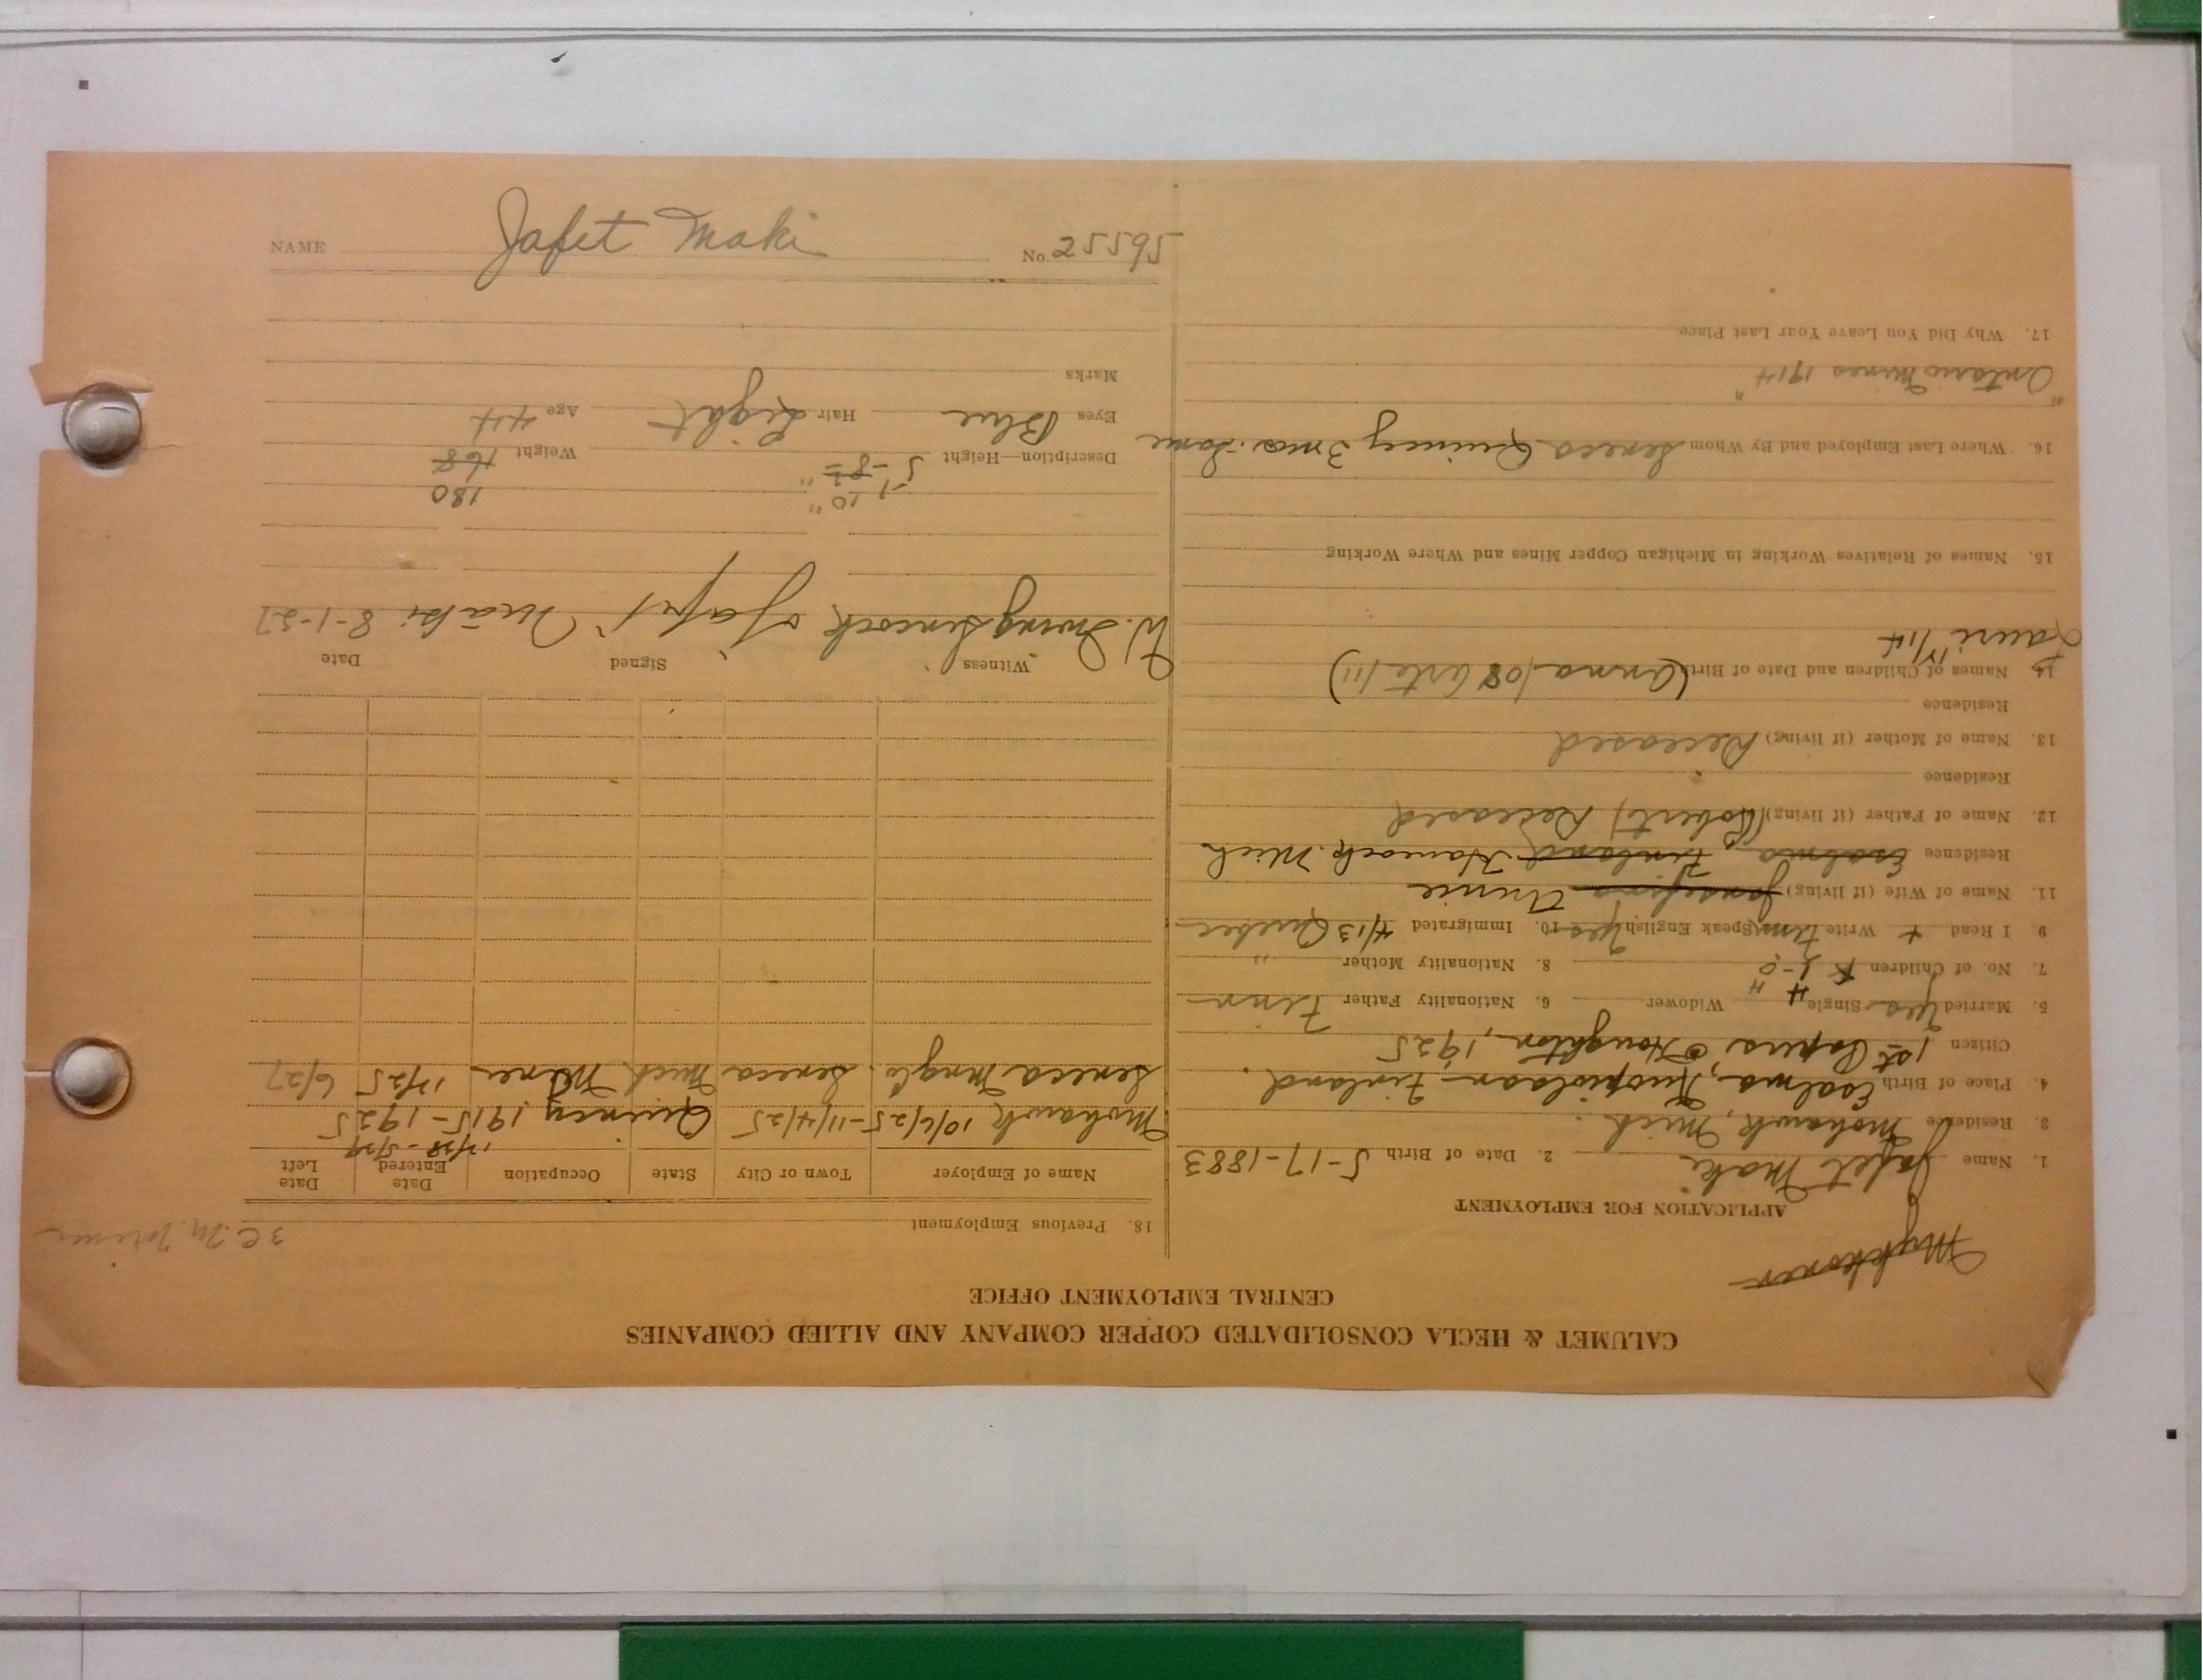 CALUMET & HECLA CONSOLIDATED COPPER COMPANY AND ALLIED COMPANIES
CENTRAL EMPLOYMENT OFFICE
Mykkonen
APPLICATION FOR EMPLOYMENT
1. Name Jafet Maki 2. Date of Birth 5-17-1883
3. Residence Mohawk, Mich.
4. Place of Birth Esalma, Kuopiolaan Finland.
Citizen 1st Papers Houghton, 1925
5. Married Yes Single Widower 6. Nationality Father Finn
7. No. of Children 8. Nationality Mother "
9. I Read + Write Finn Speak English Yes 10. Immigrated 4/13 Quebec
11. Name of Wife (if living) Josefina Annie
Residence Esalmo Finland Hancock Mich
12. Name of Father (if living) (Robert) Deceased
Residence
13. Name of Mother (if living) Deceased
Residence
14. Names of Children and Date of Birth (Anna /08 Arte /11)
Lauri
15. Names of Relatives Working in Michigan Copper Mines and Where Working
16. Where Last Employed and By Whom Seneca Quincy 3 mos. Same
"Ontario Mines 1914"
17. Why Did You Leave Your Last Place
3 C. M.
18. Previous Employment
Name of Employer Town or City State Occupation Date Entered Date Left
Mohawk 10/6/25-11/4/25 Quincy 1915-1925
Seneca Mng Co. Seneca Mich Miner 11/25 6/27
Witness Signed Date
W. Irving Sincock Jafet Mäki 8-1-27
5-10" 180
Description—Height 5-8½" Weight 168
Eyes Blue Hair Light Age 44
Marks
NAME Jafet Maki No. 25595